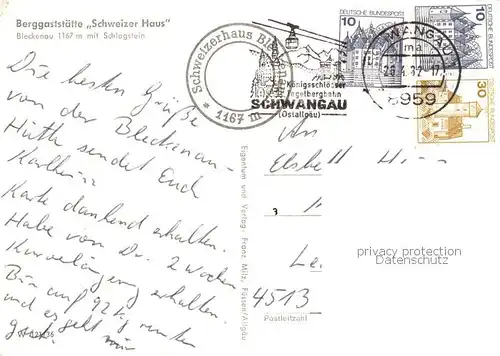 Berggaststätte „Schweizer Haus"
Bleckenau 1167 m mit Schlagstein
Die besten Grüße
von der Bleckenau-
Hütte sendet Euch
Karte dankend erhalten.
Habe von Dr. 2 Wochen
Kurverlängerung erhalten.
Bin auf 92 kg runter
und es geht mir
gut.
Schweizerhaus
* 1167 m
Königsschlösser
Tegelbergbahn
SCHWANGAU
(Ostallgäu)
DEUTSCHE BUNDESPOST
10
10
30
WANGAU
8959
Eigentum und Verlag: Franz Milz, Füssen/Allgäu
An
Le.
4513
Postleitzahl
privacy protection
Datenschutz